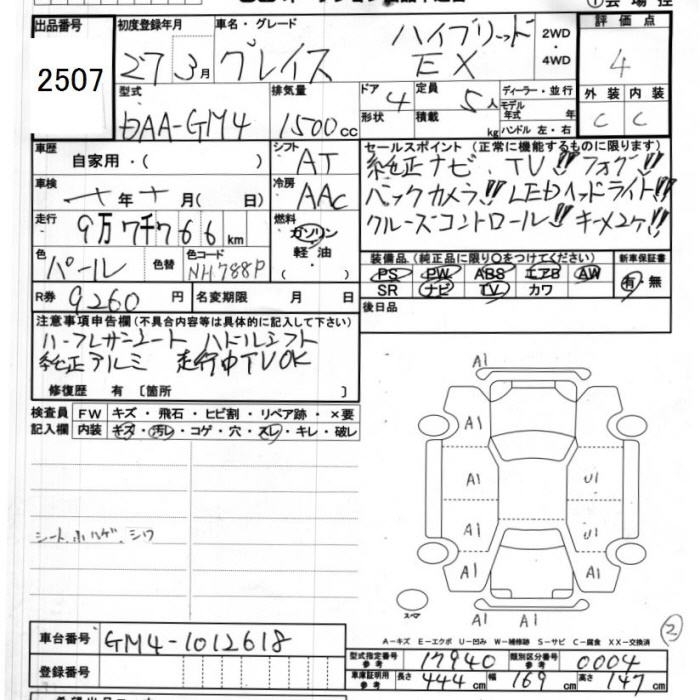 出品番号 初度登録年月 車名・グレード 2WD ・ 4WD 評価点
2507 27年 3月 グレイス ハイブリッド EX 4
外装 内装
C C
型式 排気量 ドア 定員 ディーラー・並行
DAA-GM4 1500cc 4 5人 モデル 年式 年
形状 積載 kg ハンドル 左・右
車歴 自家用・( ) シフト AT
セールスポイント (正常に機能するものに限ります)
純正ナビ、TV!! フォグ!!
バックカメラ!! LEDヘッドライト!!
クルーズコントロール!! キーメ2ケ!!
車検 年 月(日) 冷房 AAC
走行 9万7千766km 燃料 ガソリン・軽油・( )
色 パール 色替 色コード NH788P
装備品 (純正品に限り〇をつけてください) 新車保証書
PS PW ABS エアB AW 有・無
SR ナビ TV カワ
R券 9260円 名変期限 月 日 後日品
注意事項申告欄 (不具合内容等は具体的に記入して下さい)
ハーフレザーシート パドルシフト
純正アルミ 走行中TVOK
修復歴 有 〔箇所 〕
検査員 FW キズ・飛石・ヒビ割・リペア跡・×要
記入欄 内装 キズ・汚レ・コゲ・穴・スレ・キレ・破レ
シート、 シワ
A1
A1
A1 U1
A1 U1
A1 A1
A1 A1
スペア
②
A-キズ E-エクボ U-凹み W-補修跡 S-サビ C-腐食 XX-交換済
車台番号 GM4-1012618
登録番号
型式指定番号 参考 17940 類別区分番号 参考 0004
車庫証明用 参考 長さ 444cm 幅 169cm 高さ 147cm